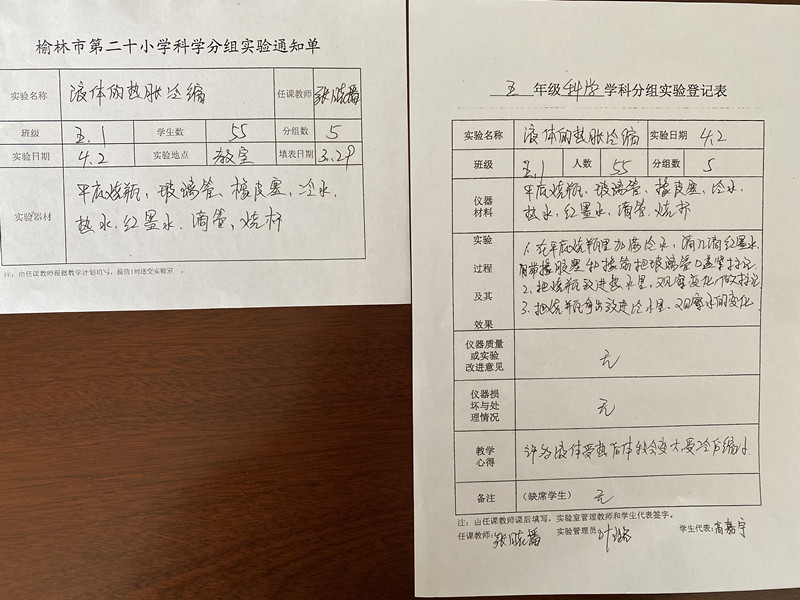 榆林市第二十小学科学分组实验通知单
实验名称 液体的热胀冷缩 任课教师
班级 五.1 学生数 55 分组数 5
实验日期 4.2 实验地点 教室 填表日期 3.29
实验器材 平底烧瓶、玻璃管、橡皮塞、冷水、
热水、红墨水、滴管、烧杯
注：由任课教师根据教学计划填写，提前1周送交实验室。
五 年级 科学 学科分组实验登记表
实验名称 液体的热胀冷缩 实验日期 4.2
班级 五.1 人数 55 分组数 5
仪器
材料
平底烧瓶、玻璃管、橡皮塞、冷水、
热水、红墨水、滴管、烧杯
实验
过程
及其
效果
1、在平底烧瓶里加满冷水，滴几滴红墨水，
用带橡胶塞 把玻璃管口 标记
2、把烧瓶放进热水里，观察变化 做标记
3、把烧瓶 放进冷水里，观察水的变化
仪器质量
或实验
改进意见
无
仪器损
坏与处
理情况
无
教学
心得
许多液体受热后体积会变大受冷后缩小
备注 （缺席学生） 无
注：由任课教师课后填写，实验室管理教师和学生代表签字。
任课教师: 实验管理员: 学生代表:高嘉宇